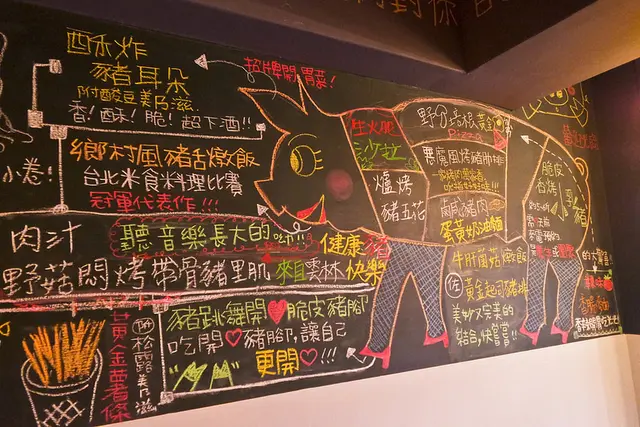 酥炸
豬耳朵
附酸豆美乃滋
香！酥！脆！超下酒！！
招牌開胃菜！
鄉村風豬舌燉飯
台北米食料理比賽
冠軍代表作！！！
小卷！
肉汁
聽音樂長大的呦！！
健康豬
野菇悶烤帶骨豬里肌
來自雲林
快樂
豬跳舞開♥脆皮豬腳
吃開♡豬腳，讓自己
更開♡！！！
黃金薯條
附松露美乃滋
生火腿
沙拉
爐烤
豬五花
野菇培根黃金
Pizza
惡魔風烤豬肋排
鹹豬肉
蛋黃奶油麵
牛肝菌菇燉飯
佐
黃金起司豬排
美妙又完美的
結合，快嘗嘗！！
脆皮
香烤
乳豬